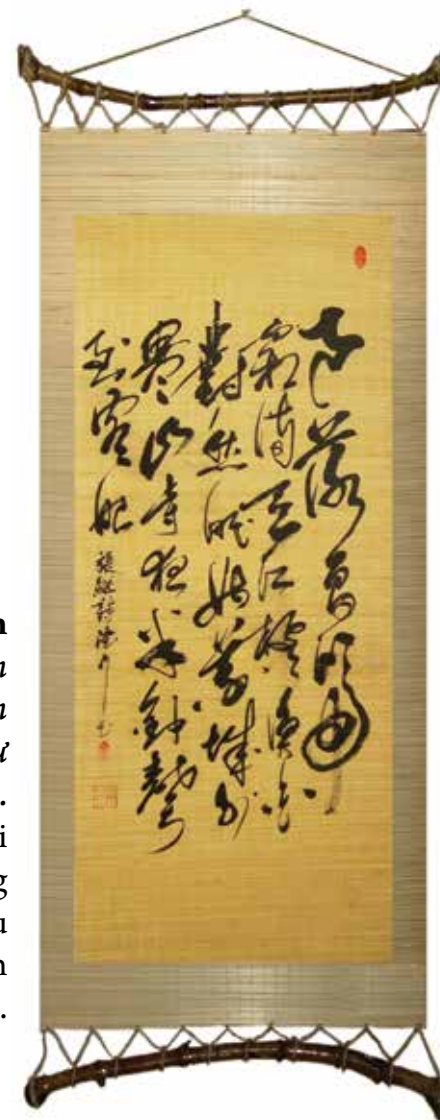 月落烏啼
霜滿天江楓漁火
對愁眠姑蘇城外
寒山寺夜半鐘聲
到客船
張繼詩
n
n
n
ư
.
i
g
u
n
.